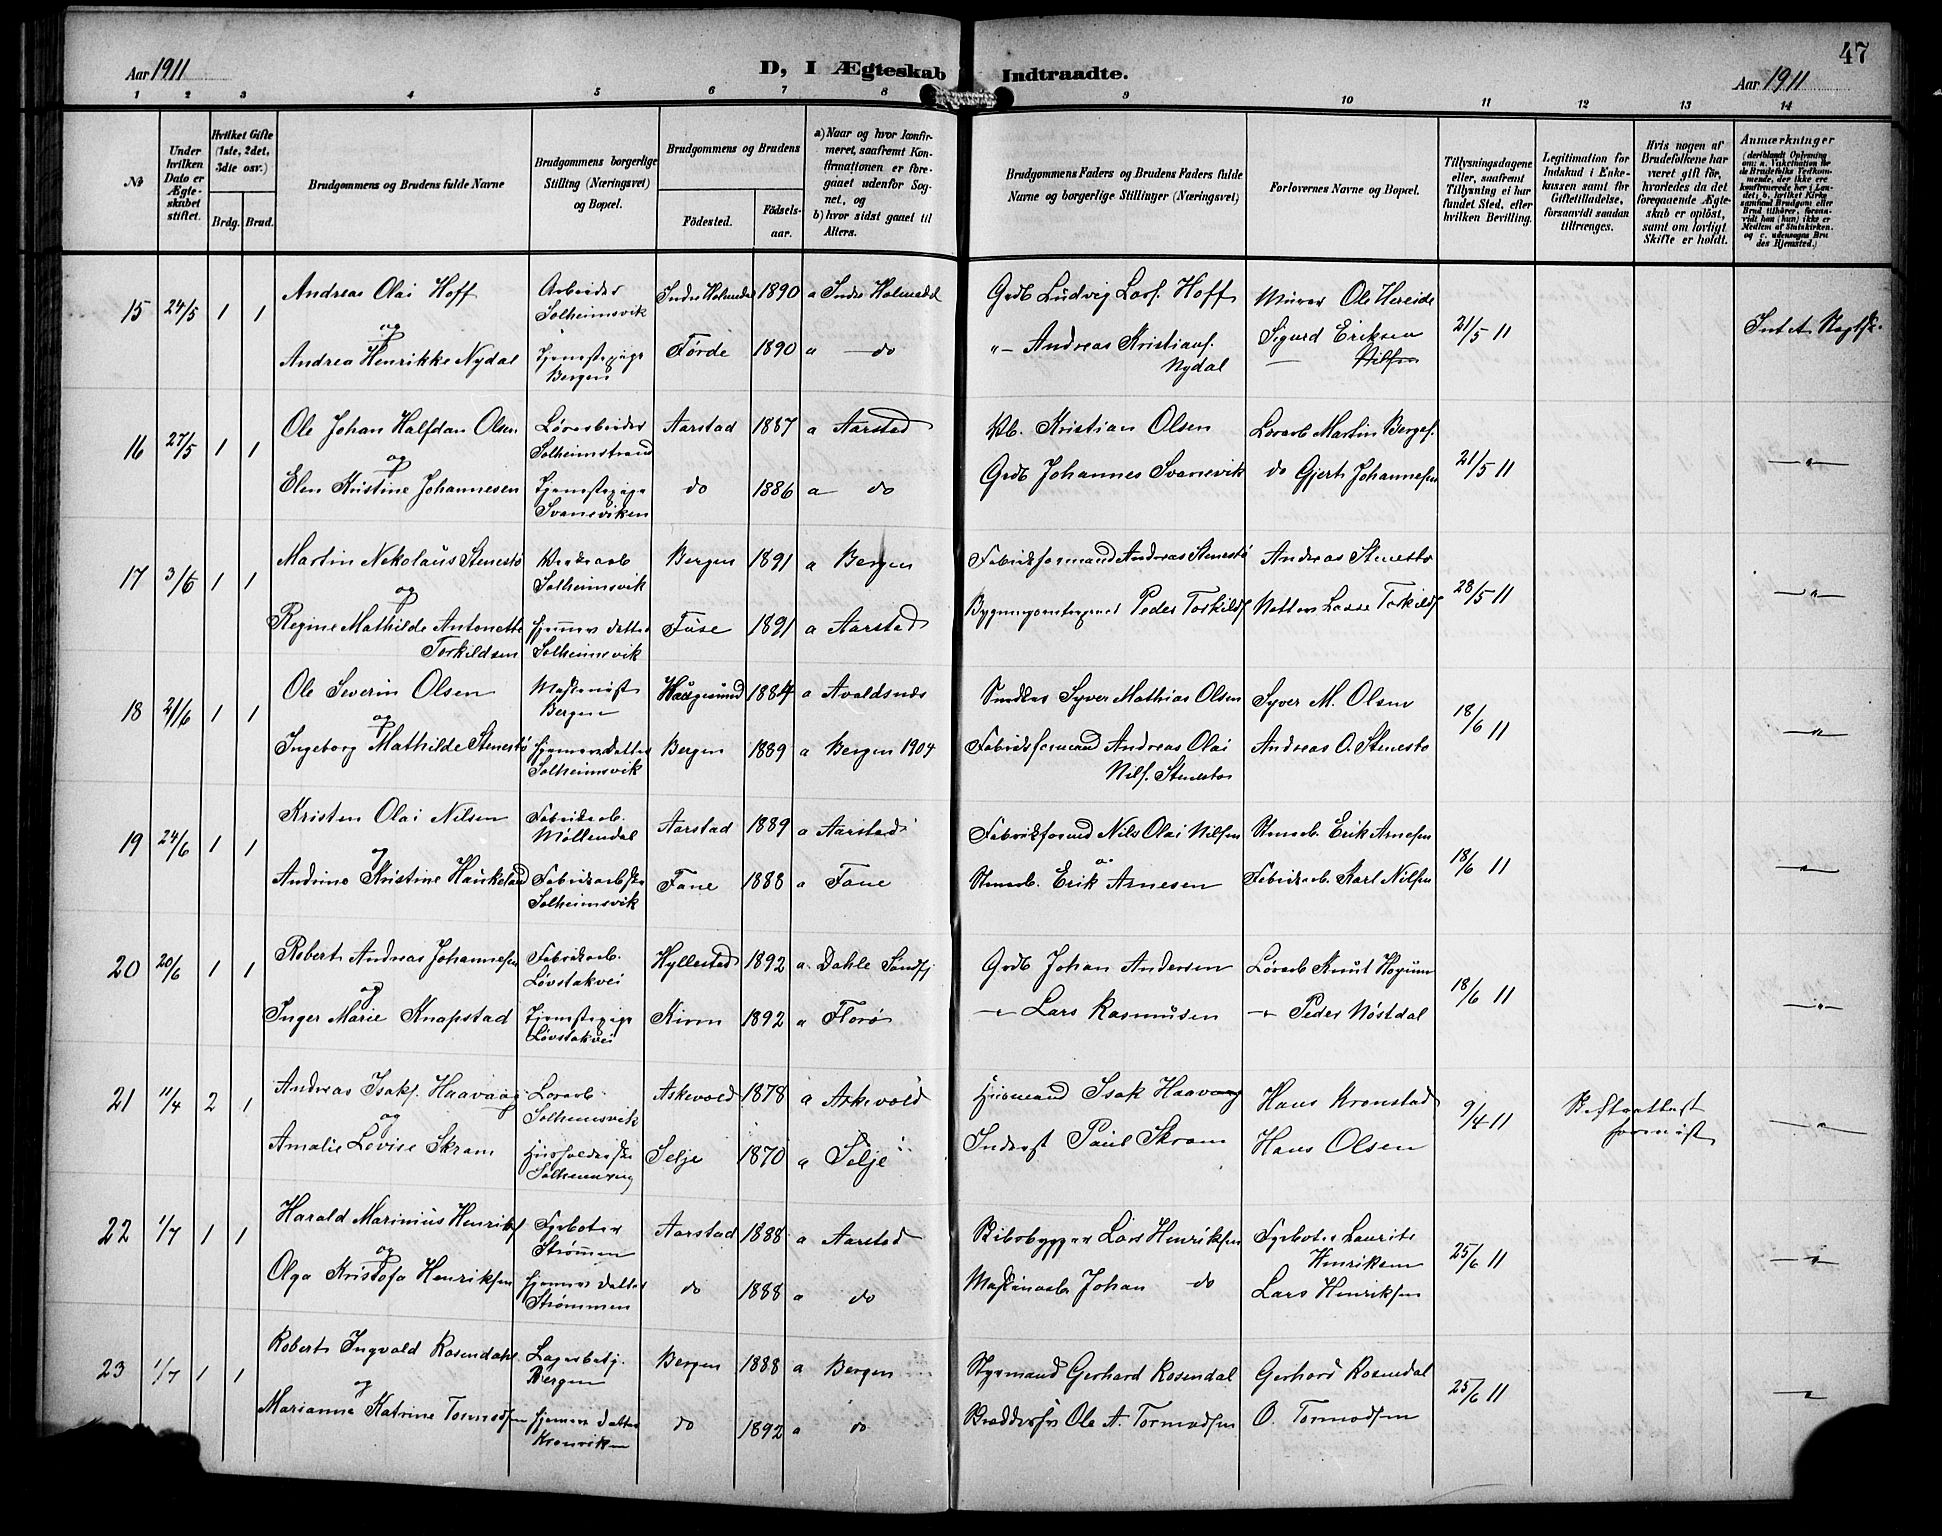 47
Aar 1911
D, I Ægteskab Indtraadte.
Aar 1911
1 2 3 4 5 6 7 8 9 10 11 12 13 14
No
Under hvilken Dato er Ægteskabet stiftet.
Hvilket Gifte (1ste, 2det, 3die osv.)
Brdg. Brud.
Brudgommens og Brudens fulde Navne
Brudgommens borgerlige Stilling (Næringsvei) og Bopæl.
Brudgommens og Brudens
Fødested.
Fødselsaar.
a) Naar og hvor konfirmeret, saafremt Konfirmationen er foregaaet udenfor Sognet, og
b) hvor sidst gaaet til Alters.
Brudgommens Faders og Brudens Faders fulde Navne og borgerlige Stillinger (Næringsvei)
Forlovernes Navne og Bopæl.
Tillysningsdagene eller, saafremt Tillysning ei har fundet Sted, efter hvilken Bevilling.
Legitimation for Indskud i Enkekassen samt for Giftetilladelse, forsaavidt saadan tiltrænges.
Hvis nogen af Brudefolkene har været gift før, hvorledes da det foregaaende Ægteskab er opløst, samt om lovligt Skifte er holdt.
Anmærkninger
15 24/5 1 1 Andreas Olai Hoff Arbeider Solheimsvik Indre Holmedal 1890 a Indre Holmedal Grdb Ludvig Lars. Hoff Murer Ole Hereide 21/5 11
og
Andrea Henrikke Nydal Tjenestepige Bergen Førde 1890 a — do " — Andreas Kristians. Nydal Sigurd Eriksen
16 27/5 1 1 Ole Johan Halfdan Olsen Solheimstrand Aarstad 1887 a Aarstad Kristian Olsen Martin Berges. 21/5 11 — " —
og
Elen Kristine Johannesen Tjenestepige Svaneviken do 1886 a do Grdb Johannes Svanevik do Gjert Johannesen
17 3/6 1 1 Martin Nikolaus Stenestø Solheimsvik Bergen 1891 a Bergen Fabrikformand Andreas Stenestø Andreas Stenestø 28/5 11 — " —
og
Regine Mathilde Antonette Torkildsen Hjemmev. datter Solheimsvik Fuse 1891 a Aarstad Peder Torkilds. Lasse Torkilds.
18 21/6 1 1 Ole Severin Olsen Bergen Haugesund 1884 a Avaldsnes Syver Mathias Olsen Syver M. Olsen 18/6 11 — " —
og
Ingeborg Mathilde Stenestø Hjemmev. datter Solheimsvik Bergen 1889 a Bergen 1904 Fabrikformand Andreas Olai Nils. Stenestø Andreas O. Stenestø
19 24/6 1 1 Kristen Olai Nilsen Fabrikarb. Møllendal Aarstad 1889 a Aarstad Fabrikformd Nils Olai Nilsen Stenarb. Erik Arnesen 18/6 11 — " —
og
Kristine Haukeland Solheimsvik Fane 1888 a Fane Stenarb. Erik Arnesen Fabrikarb. Karl Nilsen
20 20/6 1 1 Robert Andreas Johannesen Fabrikarb. Løvstakvei Hyllestad 1892 a Dahle Søndfj Grdb Johan Andersen 18/6 11 — " —
og
Inger Marie Knapstad Tjenestepige Løvstakvei Kinn 1892 a Florø — " Lars Rasmusen — " Peder Nøstdal
21 11/4 2 1 Andreas Isaks. Haavaag Solheimsvik Askevold 1878 a Askevold Husmand Isak Haavaag Hans Kronstad 9/4 11 — " —
og
Amalie Lovise Skram Selje 1870 a Selje Inderst Paul Skram Hans Olsen
22 1/7 1 1 Harald Marinius Henriks. Fyrbøter Strømmen Aarstad 1888 a Aarstad Lars Henriksen Fyrbøter Laurits Henriksen 25/6 11 — " —
og
Olga Kristofa Henriksen Hjemmev. datter Strømmen do 1888 a do Maskinarb. Johan do Lars Henriksen
23 1/7 1 1 Robert Ingvald Rosendahl Lagerbetj. Bergen Bergen 1888 a Bergen Styrmand Gerhard Rosendal Gerhard Rosendal 25/6 11 — " —
og
Marianne Katrine Tormodsen Hjemmev. datter do 1892 a do Ole A. Tormodsen O. Tormodsen